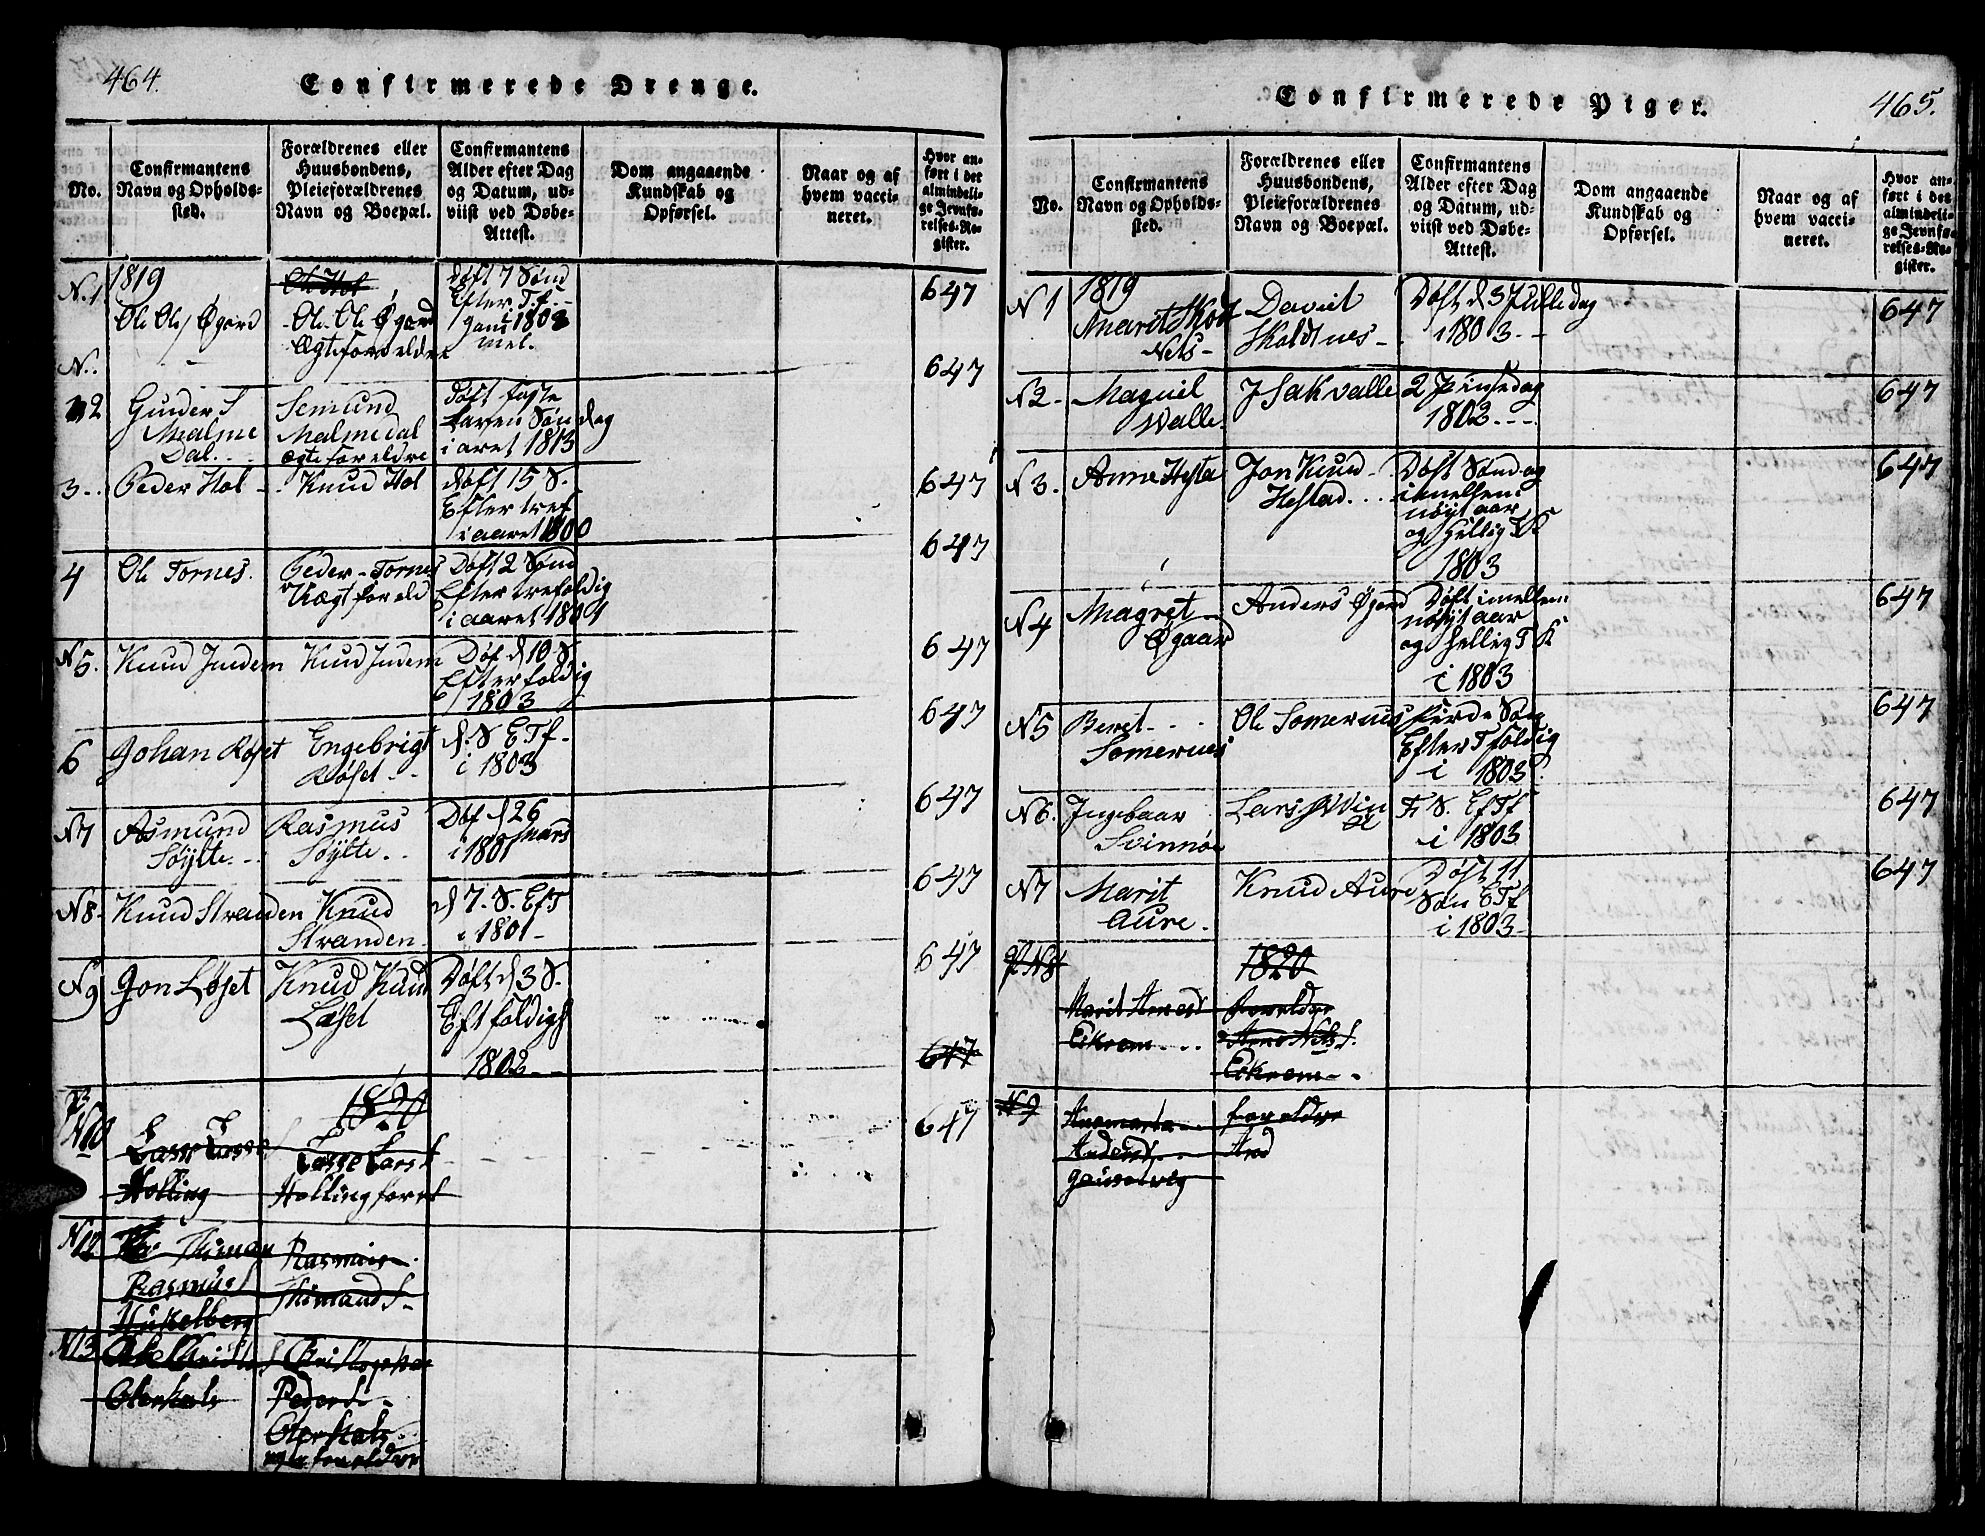 464.
Confirmerede Drenge.
No.
Confirmantens Navn og Opholdssted.
Forældrenes eller Huusbondens, Pleieforældrenes Navn og Boepæl.
Confirmantens Alder efter Dag og Datum, udviist ved Døbe-Attest.
Dom angaaende Kundskab og Opførsel.
Naar og af hvem vaccineret.
Hvor anført i det almindelige Jevnførelses-Register.
1819
N. 1 Ole Ols Øgard
Ole Hol
Ole Ols Øgard
Ægteforeldre
Døft 7 Sønd
Efter Tf. i 1803
647
N.
2 Gunder S
Malme
Dal.
Semund
Malmedal
Ægte foreldre
Døft faste
laven Søndag
i aret 1813
647
3 Peder Hol
Knud Hol
døft 15 S.
Efter tref
i aaret 1800
647
4 Ole Tornes.
Peder Tornes
Ægt foreld
Døft 2 Sønd
Efter trefoldig
i aaret 1801
647
N5. Knud Indem
Knud Indem
Døf d 10 S
Efter foldig
1803
647
6 Johan Røset
Engebrigt
Røset
d. S ETf
i 1803
647
N7 Asmund
Søylte
Rasmus
Søylte
Døf d 26
Mars
i 1801
647
N8. Knud Stranden
Knud
Stranden
d 7. S. Ef T
i 1801
647
N9 Jon Løset
Knud Knud
Løset
Døft d 3 S.
Eft foldigh
1802
647
647
N10
1820
Lasse Lasse
Holling
Lasse Lars f
Holling foret
647
N12
Thiman
Rasmus
Huskelberg
Rasmus
Thimand S
N13
Christopher
Peder S
foreldre
465.
Confirmerede Piger.
No.
Confirmantens Navn og Opholdssted.
Forældrenes eller Huusbondens, Pleieforældrenes Navn og Boepæl.
Confirmantens Alder efter Dag og Datum, udviist ved Døbe-Attest.
Dom angaaende Kundskab og Opførsel.
Naar og af hvem vaccineret.
Hvor anført i det almindelige Jevnførelses-Register.
N 1
1819
Marit Skot
Nels
Daviet
Skoldnes
Døft d 3 Julledag
i 1803
647
N2 Maquil
Walle.
J Sak valle
2 Pinsedag
1802
647
N3. Anne Hesta
Jon Knud
Hestad
Døft Søndag
imellem
nøyt aar
og Hellig T K
1803
647
N4 Magret
Øgaar
Anders Øjerd
Døft imellem
nøyt aar
og Hellig T K
i 1803
647
N5 Beret
Somernes
Ole Somernes
fierde Søn
Efter T foldig
i 1803
647
N6. Ingebaar
Svinnøe
Lars Svin
øe
F. S. Ef Tf
i 1803
647
N7 Marit
Aure.
Knud Aure
Døft 11
Søn ETf
i 1803
647
N8
1820
Marit Arnesd
Eikrem
foreldre
Arne Nels S.
Eikrem
N9
Anemarta
Andersd
foreldre
And